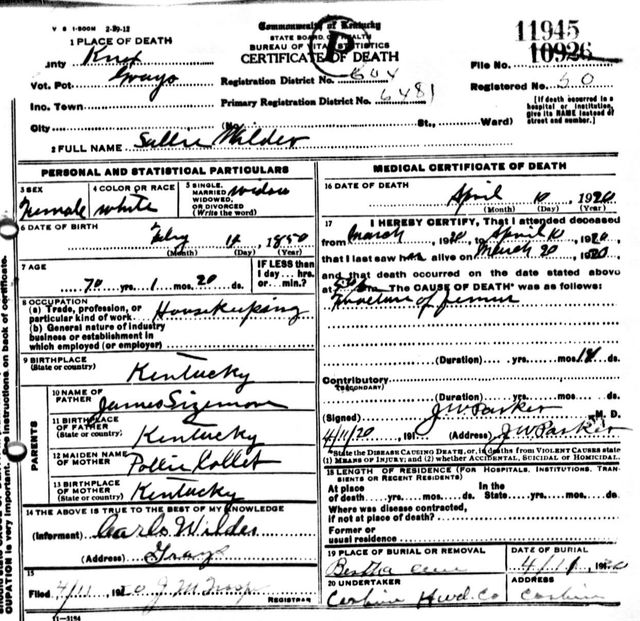 V S 1-500M 2-29-12
Commonwealth of Kentucky
STATE BOARD OF HEALTH
BUREAU OF VITAL STATISTICS
CERTIFICATE OF DEATH
11945
10926
1 PLACE OF DEATH
unty Knox
File No.
Vot. Pct. Grays
Registration District No. 604
Registered No. 50
Inc. Town
Primary Registration District No. 6481
[If death occurred in a hospital or institution, give its NAME instead of street and number.]
City (No. St., Ward)
2 FULL NAME Sallie Wilder
PERSONAL AND STATISTICAL PARTICULARS
3 SEX Female
4 COLOR OR RACE white
5 SINGLE, MARRIED, WIDOWED, OR DIVORCED (Write the word) widow
6 DATE OF BIRTH Feby 18 , 1850
(Month) (Day) (Year)
7 AGE 70 yrs. 1 mos. 20 ds.
IF LESS than 1 day.... hrs. or.... min.?
8 OCCUPATION
(a) Trade, profession, or particular kind of work Housekeeping
(b) General nature of industry
business or establishment in
which employed (or employer)
9 BIRTHPLACE
(State or country) Kentucky
PARENTS
10 NAME OF FATHER James Sizemore
11 BIRTHPLACE OF FATHER
(State or country) Kentucky
12 MAIDEN NAME OF MOTHER Pollie Collet
13 BIRTHPLACE OF MOTHER
(State or country) Kentucky
14 THE ABOVE IS TRUE TO THE BEST OF MY KNOWLEDGE
(Informant) Wilder
(Address) Grays
15
Filed 4/11 19 20 J M Troop
REGISTRAR
11-3184
MEDICAL CERTIFICATE OF DEATH
16 DATE OF DEATH
April 10 , 1920
(Month) (Day) (Year)
17 I HEREBY CERTIFY, That I attended deceased
from March , 1920, to April 10 , 1920,
that I last saw her alive on March 20 1920
and that death occurred on the date stated above
at m. The CAUSE OF DEATH* was as follows:
Fracture of femur
(Duration) yrs. mos. ds.
Contributory
(SECONDARY)
(Duration) yrs. mos. ds.
(Signed) J W Parker M. D.
4/11/20 , 191 (Address) J W Parker
*State the DISEASE CAUSING DEATH, or, in deaths from VIOLENT CAUSES state
(1) MEANS OF INJURY; and (2) whether ACCIDENTAL, SUICIDAL or HOMICIDAL.
18 LENGTH OF RESIDENCE (FOR HOSPITALS, INSTITUTIONS, TRANSIENTS OR RECENT RESIDENTS)
At place of death yrs. mos. ds. In the State yrs. mos. ds.
Where was disease contracted,
if not at place of death?
Former or
usual residence
19 PLACE OF BURIAL OR REMOVAL
DATE OF BURIAL
Bertha 4/11 , 1920
20 UNDERTAKER
ADDRESS
Corbin Hwd. Co Corbin
OUPATION is very important. See instructions on back of certificate.